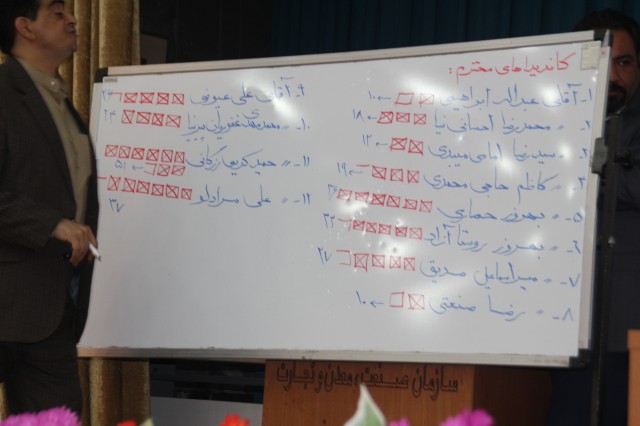 کاندیداهای محترم:
۱- آقای عبداله ابراهیمی ← ۱۰
۲- " محمدرضا احسانی نیا ← ۱۸
۳- " سیدرضا امامی میبدی ← ۱۲
۴- " کاظم حاجی محمدی ← ۱۹
۵- " بهروز حصاری
۶- " بهروز روستا آزاد ← ۲۲
۷- " میراسماعیل صدیق ← ۲۷
۸- " رضا صنعتی ← ۱۰
۹- آقای علی عیونی ۲۳
۱۰- " ۲۴
۱۱- " حمید کریمی زرگانی ← ۵۱
۱۲- " علی مرادلو ۳۷
سازمان صنعت، معدن و تجارت